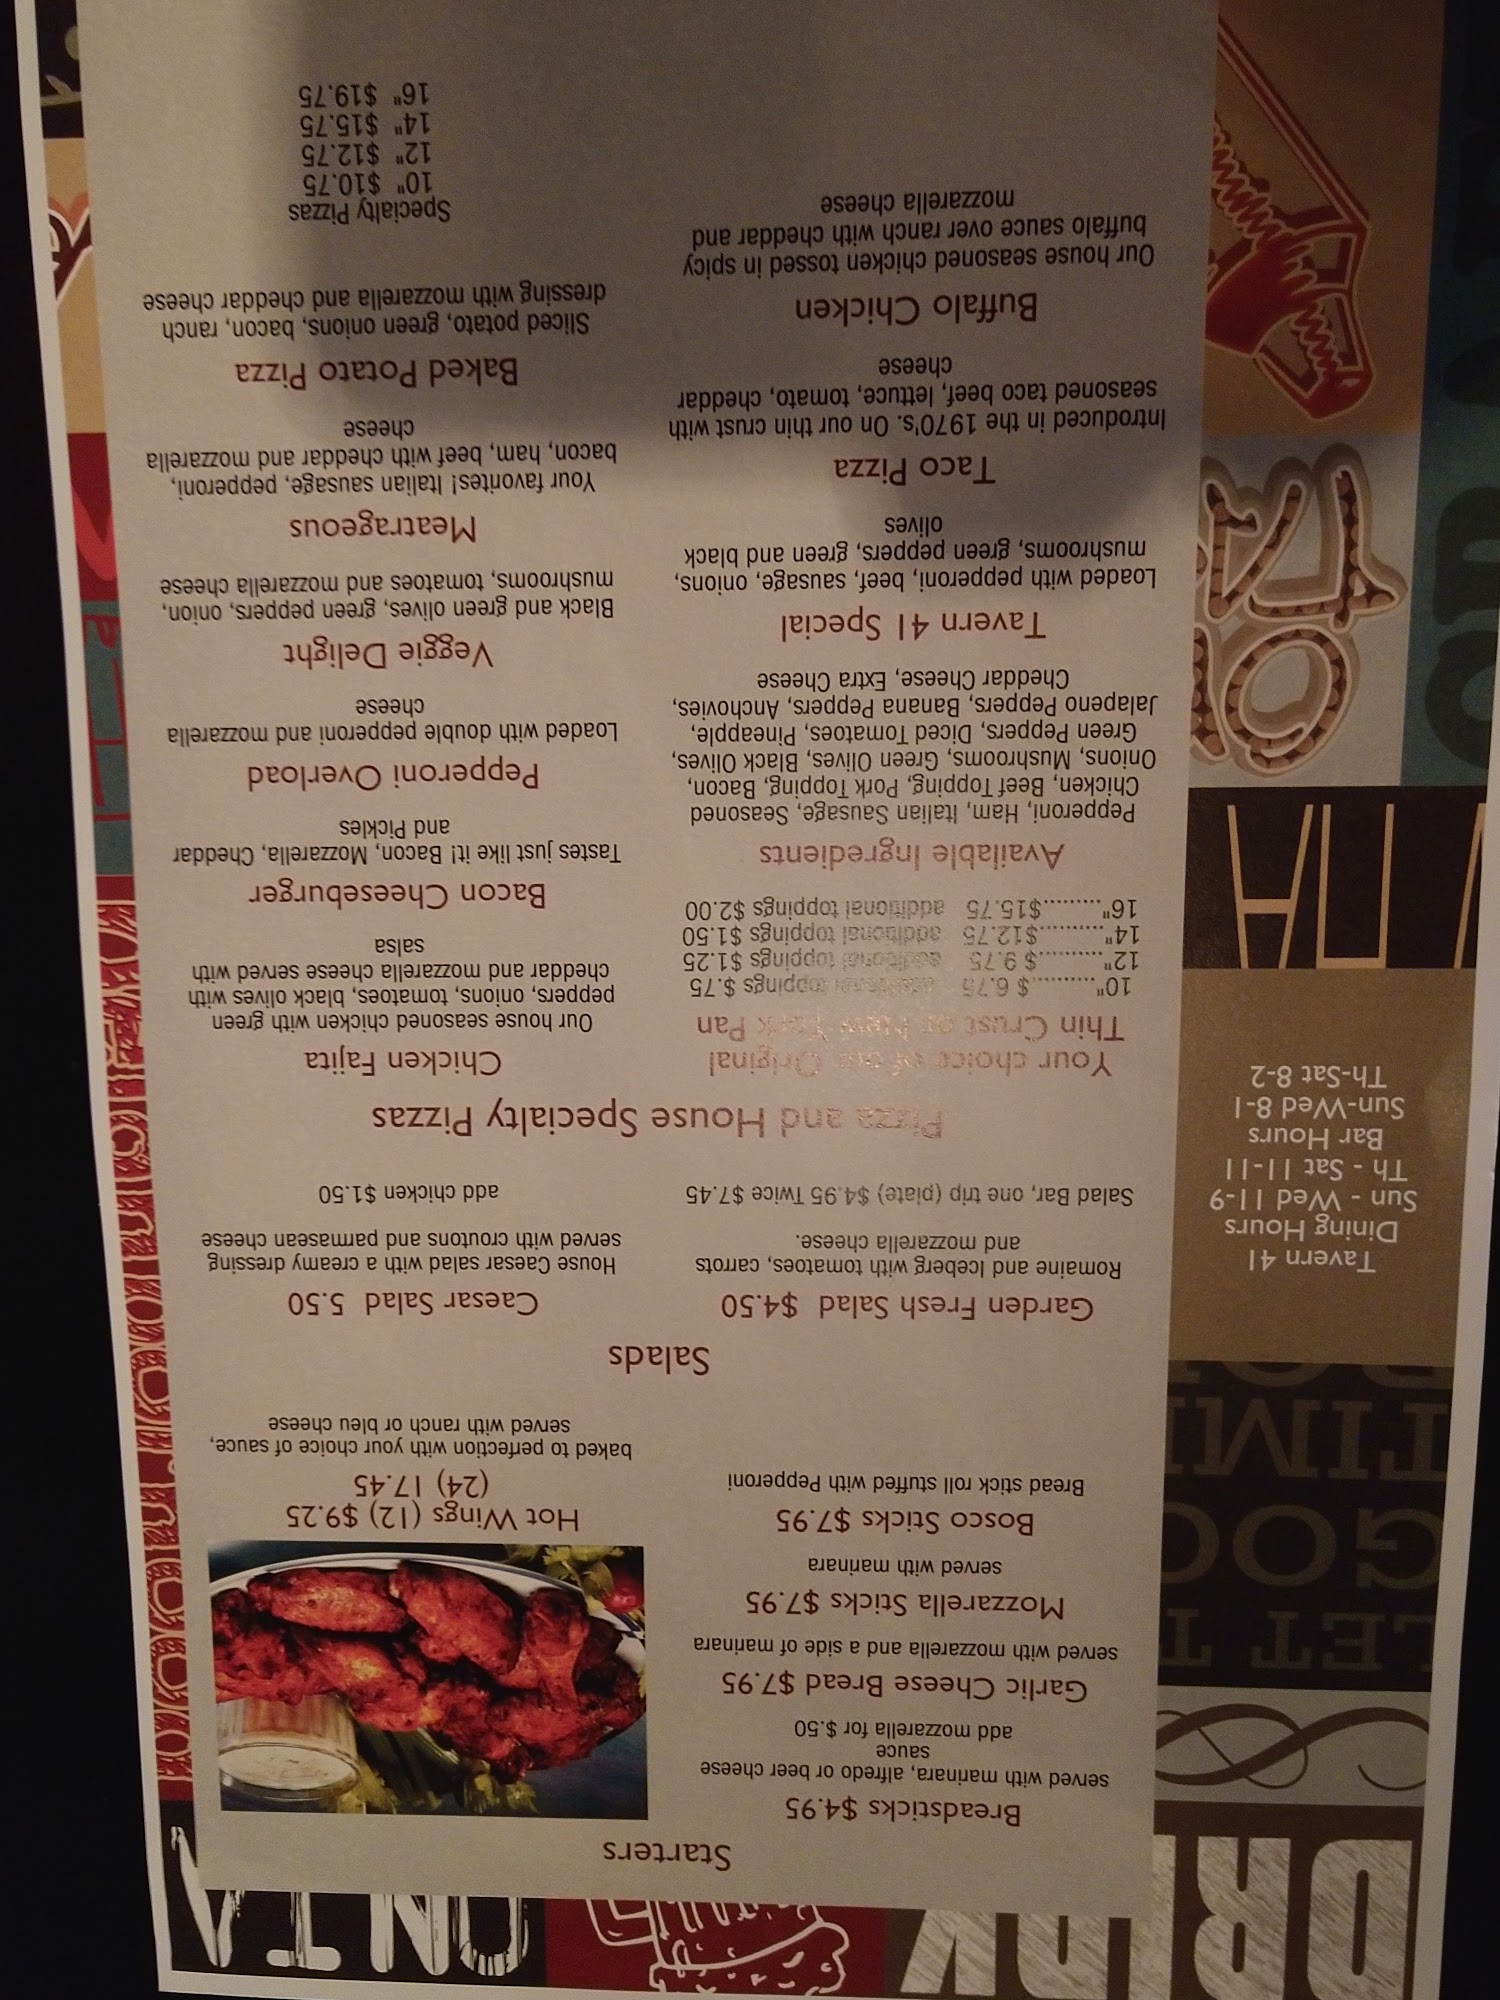 DRINK
ON TA
Starters
Breadsticks $4.95
served with marinara, alfredo or beer cheese
sauce
add mozzarella for $.50
Garlic Cheese Bread $7.95
served with mozzarella and a side of marinara
Mozzarella Sticks $7.95
served with marinara
Bosco Sticks $7.95
Bread stick roll stuffed with Pepperoni
Hot Wings (12) $9.25
(24) 17.45
baked to perfection with your choice of sauce,
served with ranch or bleu cheese
Salads
Garden Fresh Salad $4.50
Romaine and Iceberg with tomatoes, carrots
and mozzarella cheese.
Salad Bar, one trip (plate) $4.95 Twice $7.45
Caesar Salad 5.50
House Caesar salad with a creamy dressing
served with croutons and parmasean cheese
add chicken $1.50
Pizza and House Specialty Pizzas
Your choice of our Original
Thin Crust or New York Pan
10"..........$ 6.75 additional toppings $.75
12"..........$ 9.75 additional toppings $1.25
14"..........$12.75 additional toppings $1.50
16"..........$15.75 additional toppings $2.00
Available Ingredients
Pepperoni, Ham, Italian Sausage, Seasoned
Chicken, Beef Topping, Pork Topping, Bacon,
Onions, Mushrooms, Green Olives, Black Olives,
Green Peppers, Diced Tomatoes, Pineapple,
Jalapeno Peppers, Banana Peppers, Anchovies,
Cheddar Cheese, Extra Cheese
Tavern 41 Special
Loaded with pepperoni, beef, sausage, onions,
mushrooms, green peppers, green and black
olives
Taco Pizza
Introduced in the 1970's. On our thin crust with
seasoned taco beef, lettuce, tomato, cheddar
cheese
Buffalo Chicken
Our house seasoned chicken tossed in spicy
buffalo sauce over ranch with cheddar and
mozzarella cheese
Chicken Fajita
Our house seasoned chicken with green
peppers, onions, tomatoes, black olives with
cheddar and mozzarella cheese served with
salsa
Bacon Cheeseburger
Tastes just like it! Bacon, Mozzarella, Cheddar
and Pickles
Pepperoni Overload
Loaded with double pepperoni and mozzarella
cheese
Veggie Delight
Black and green olives, green peppers, onion,
mushrooms, tomatoes and mozzarella cheese
Meatrageous
Your favorites! Italian sausage, pepperoni,
bacon, ham, beef with cheddar and mozzarella
cheese
Baked Potato Pizza
Sliced potato, green onions, bacon, ranch
dressing with mozzarella and cheddar cheese
Specialty Pizzas
10" $10.75
12" $12.75
14" $15.75
16" $19.75
LET T
GOO
TIME
Tavern 41
Dining Hours
Sun - Wed 11-9
Th - Sat 11-11
Bar Hours
Sun-Wed 8-1
Th-Sat 8-2